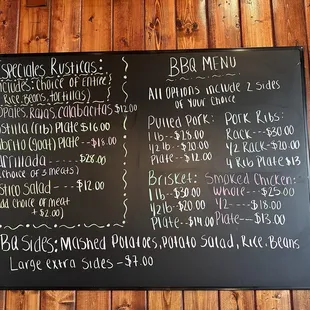 Especiales Rusticas:
Includes: choice of entire's
Rice, Beans, tortillas)
opales, Rajas, calabacitas $12.00
ostilla (rib) Plate $16.00
abrito (goat) Plate --- $18.00
arrillada ---- $28.00
choice of 3 meats)
ustico Salad --- $12.00
add choice of meat
+ $2.00)
BBQ MENU
All Options include 2 Sides
of Your Choice
Pulled Pork:
1lb --- $28.00
1/2 lb -- $20.00
Plate -- $12.00
Pork Ribs:
Rack --- $30.00
1/2 Rack -- $20.00
4 Rib Plate $13
Brisket:
1lb --- $30.00
1/2 lb -- $20.00
Plate -- $14.00
Smoked Chicken:
Whole --- $25.00
1/2 ---- $18.00
Plate --- $13.00
BQ Sides: Mashed Potatoes, Potato Salad, Rice, Beans
Large extra Sides - $7.00